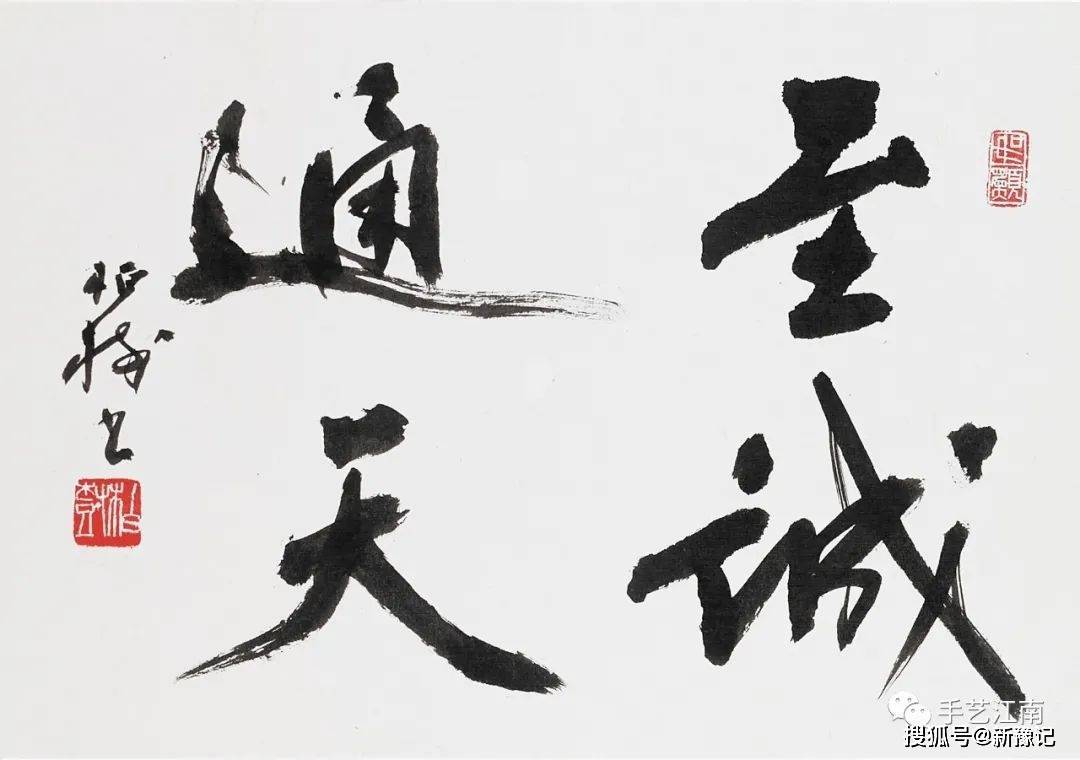 至诚
通天
书
手艺江南
搜狐号@新豫记